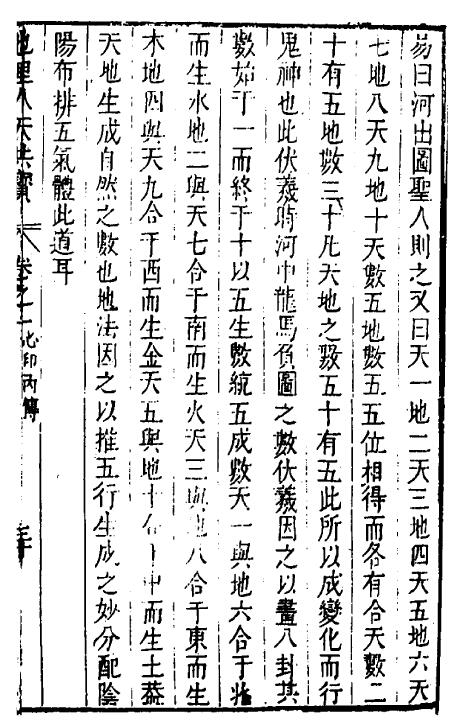 易曰河出圖聖人則之又曰天一地二天三地四天五地六天
七地八天九地十天數五地數五五位相得而各有合天數二
十有五地數三十凡天地之數五十有五此所以成變化而行
鬼神也此伏羲時河中龍馬負圖之數伏羲因之以畫八卦其
數始于一而終于十以五生數統五成數天一與地六合于北
而生水地二與天七合于南而生火天三與地八合于東而生
木地四與天九合于西而生金天五與地十合于中而生土葢
天地生成自然之數也地法因之以推五行生成之妙分配陰
陽布排五氣體此道耳
地理人天共寳 卷之 心印內傳